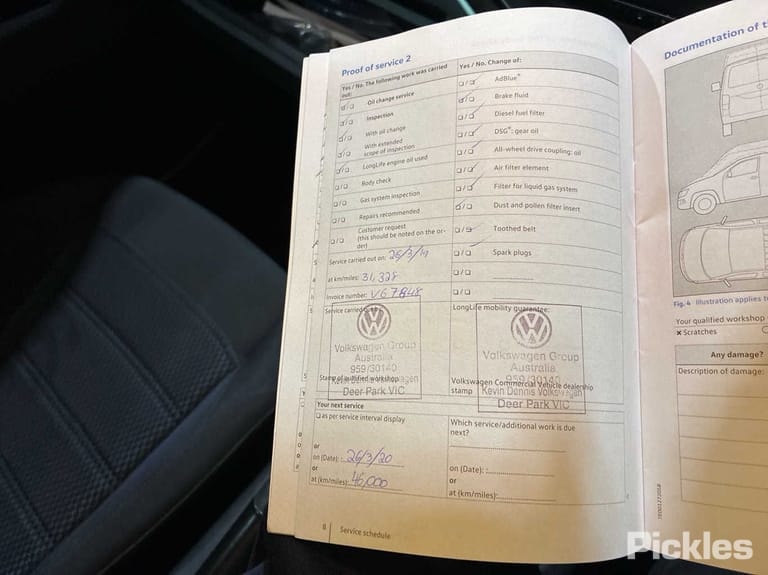 Proof of service 2
Yes / No. The following work was carried out:
Oil change service
Inspection
With oil change
With extended scope of inspection
LongLife engine oil used
Body check
Gas system inspection
Repairs recommended
Customer request (this should be noted on the or-
der)
Service carried out on: 26/3/19
at km/miles: 31,328
Invoice number: VG7848
Service carried
Volkswagen Group
Australia
959/30140
Kevin Dennis Volkswagen
Deer Park VIC
Stamp of qualified workshop
Yes / No. Change of:
AdBlue®
Brake fluid
Diesel fuel filter
DSG®: gear oil
All-wheel drive coupling: oil
Air filter element
Filter for liquid gas system
Dust and pollen filter insert
Toothed belt
Spark plugs
LongLife mobility guarantee:
Volkswagen Group
Australia
959/30140
Kevin Dennis Volkswagen
Deer Park VIC
Volkswagen Commercial Vehicle dealership
stamp
Your next service
as per service interval display
or
on (Date): 26/3/20
or
at (km/miles): 46,000
Which service/additional work is due
next?
on (Date):
or
at (km/miles):
8 Service schedule
Documentation of
Fig. 4 Illustration applies
Your qualified workshop
× Scratches
Any damage?
Description of damage:
Pickles